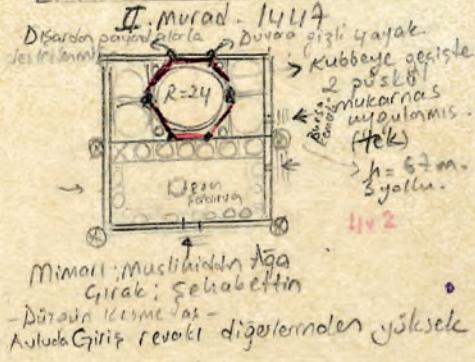 II. Murad. 1447
Dışardan payandalarla
desteklenmiş
Duvara gizli ayak.
> Kubbeye geçişte
2 püskül
mukarnas
uygulanmış.
(tek)
R=24
Bursa
h = 67 m.
3 yollu.
4x2
Mimarı: Muslihiddin Ağa
Çırak: Şehabettin
- Düzgün kesme taş -
Avluda Giriş revakı diğerlerinden yüksek